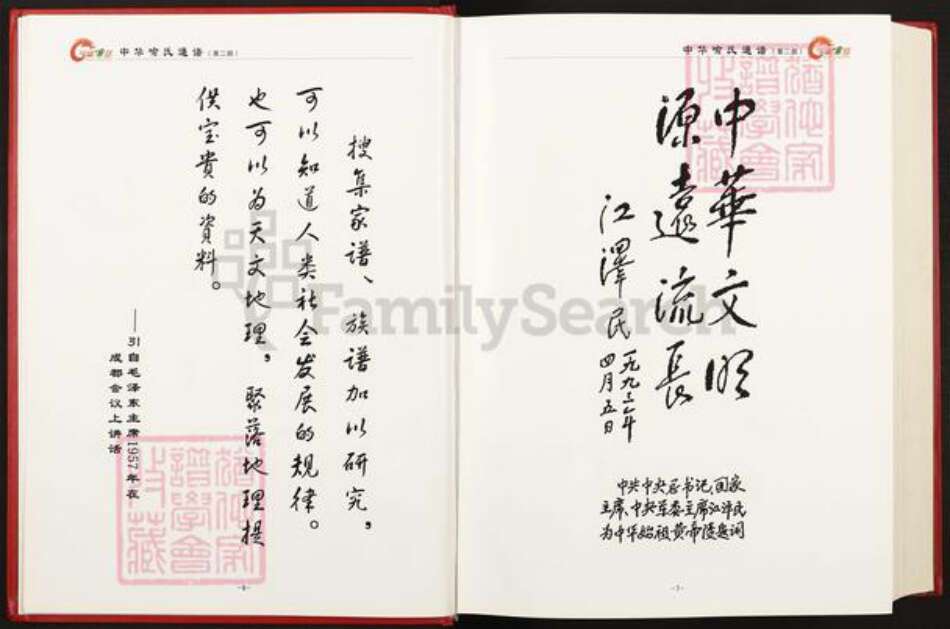 中华喻氏通谱（第二部）
搜集家谱、族谱加以研究，
可以知道人类社会发展的规律。
也可以为天文地理，聚落地理提
供宝贵的資料。
——引自毛泽东主席1957年在
成都会议上讲话
中华喻氏通谱（第二部）
中華文明
源遠流長
江澤民
一九九三年
四月五日
中共中央总书记、国家
主席、中央军委主席江泽民
为中华始祖黄帝陵题词
FamilySearch